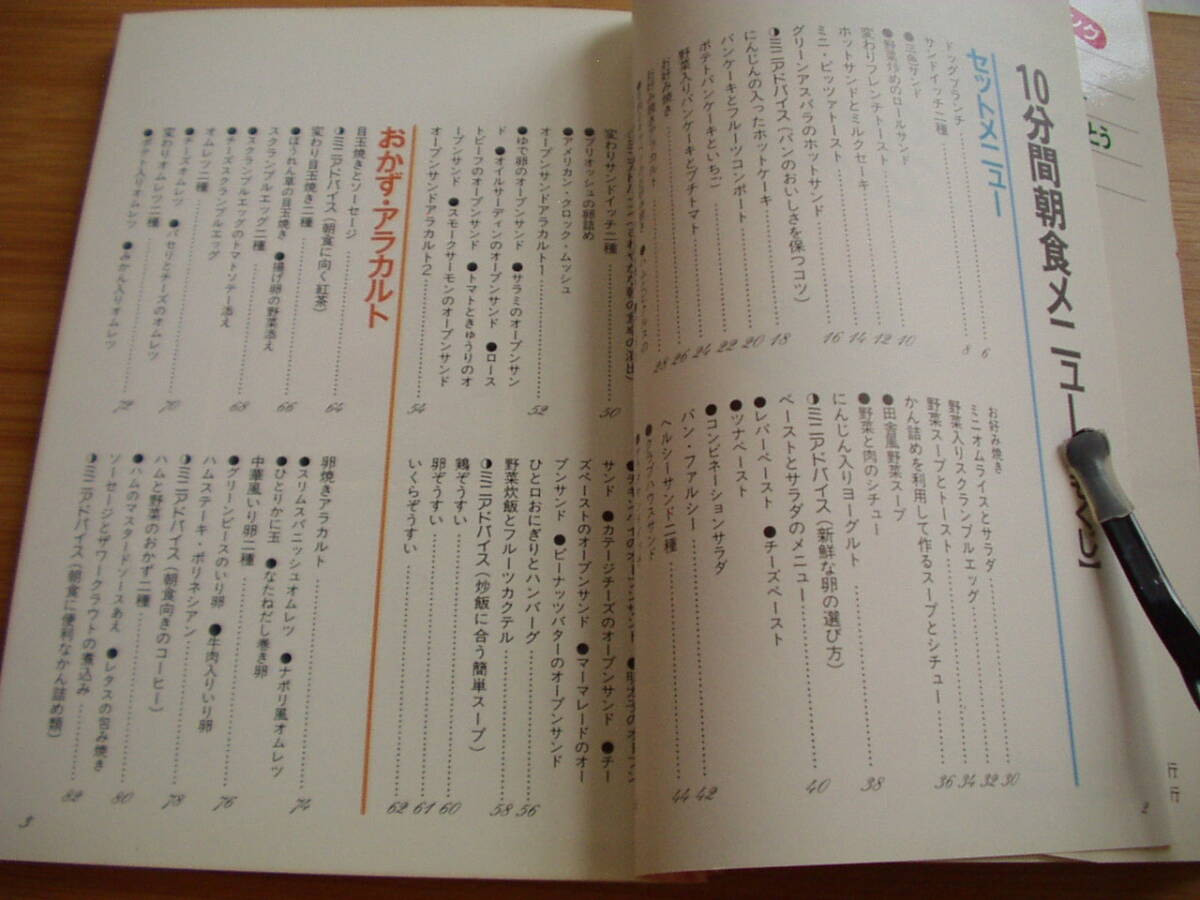 10分間朝食メニュー
セットメニュー
ドッグブランチ 6
サンドイッチ二種 8
●三色サンド
●野菜炒めのロールサンド 10
変わりフレンチトースト 12
ホットサンドとミルクセーキ 14
ミニ・ピッツァトースト 16
グリーンアスパラのホットサンド
◑ミニアドバイス(パンのおいしさを保つコツ)
にんじんの入ったホットケーキ 18
パンケーキとフルーツコンポート 20
ポテトパンケーキといちご 22
野菜入りパンケーキとプチトマト 24
お好み焼き 26
お好み焼きアラカルト 28
お好み焼き 30
ミニオムライスとサラダ 32
野菜入りスクランブルエッグ 34
野菜スープとトースト 36
かん詰めを利用して作るスープとシチュー
●田舎風野菜スープ
●野菜と肉のシチュー 38
にんじん入りヨーグルト
◑ミニアドバイス(新鮮な卵の選び方)
ペーストとサラダのメニュー 40
●レバーペースト ●チーズペースト
●ツナペースト
●コンビネーションサラダ
パン・ファルシー 42
ヘルシーサンド二種 44
●クラブハウスサンド
2
変わりサンドイッチ二種 50
●ブリオッシュの卵詰め
●アメリカン・クロック・ムッシュ
オープンサンドアラカルト1 52
●ゆで卵のオープンサンド ●サラミのオープンサン
ド ●オイルサーディンのオープンサンド ●ロース
トビーフのオープンサンド ●トマトときゅうりのオ
ープンサンド ●スモークサーモンのオープンサンド
オープンサンドアラカルト2 54
サンド ●カテージチーズのオープンサンド ●チー
ズペーストのオープンサンド ●マーマレードのオー
プンサンド ●ピーナッツバターのオープンサンド
ひと口おにぎりとハンバーグ 56
野菜炊飯とフルーツカクテル 58
◑ミニアドバイス(炒飯に合う簡単スープ)
鶏ぞうすい 60
卵ぞうすい 61
いくらぞうすい 62
おかず・アラカルト
目玉焼きとソーセージ 64
◑ミニアドバイス(朝食に向く紅茶)
変わり目玉焼き二種 66
●ほうれん草の目玉焼き ●揚げ卵の野菜添え
スクランブルエッグ二種 68
●スクランブルエッグのトマトソテー添え
●チーズスクランブルエッグ
オムレツ二種 70
●チーズオムレツ ●パセリとチーズのオムレツ
変わりオムレツ二種 72
●ポテト入りオムレツ ●みかん入りオムレツ
卵焼きアラカルト 74
●スリムスパニッシュオムレツ ●ナポリ風オムレツ
●ひとりかに玉 ●なたねだし巻き卵
中華風いり卵二種 76
●グリーンピースのいり卵 ●牛肉入りいり卵
ハムステーキ・ポリネシアン 78
◑ミニアドバイス(朝食向きのコーヒー)
ハムと野菜のおかず二種 80
●ハムのマスタードソースあえ ●レタスの包み焼き
ソーセージとザワークラウトの煮込み 82
◑ミニアドバイス(朝食に便利なかん詰め類)
3